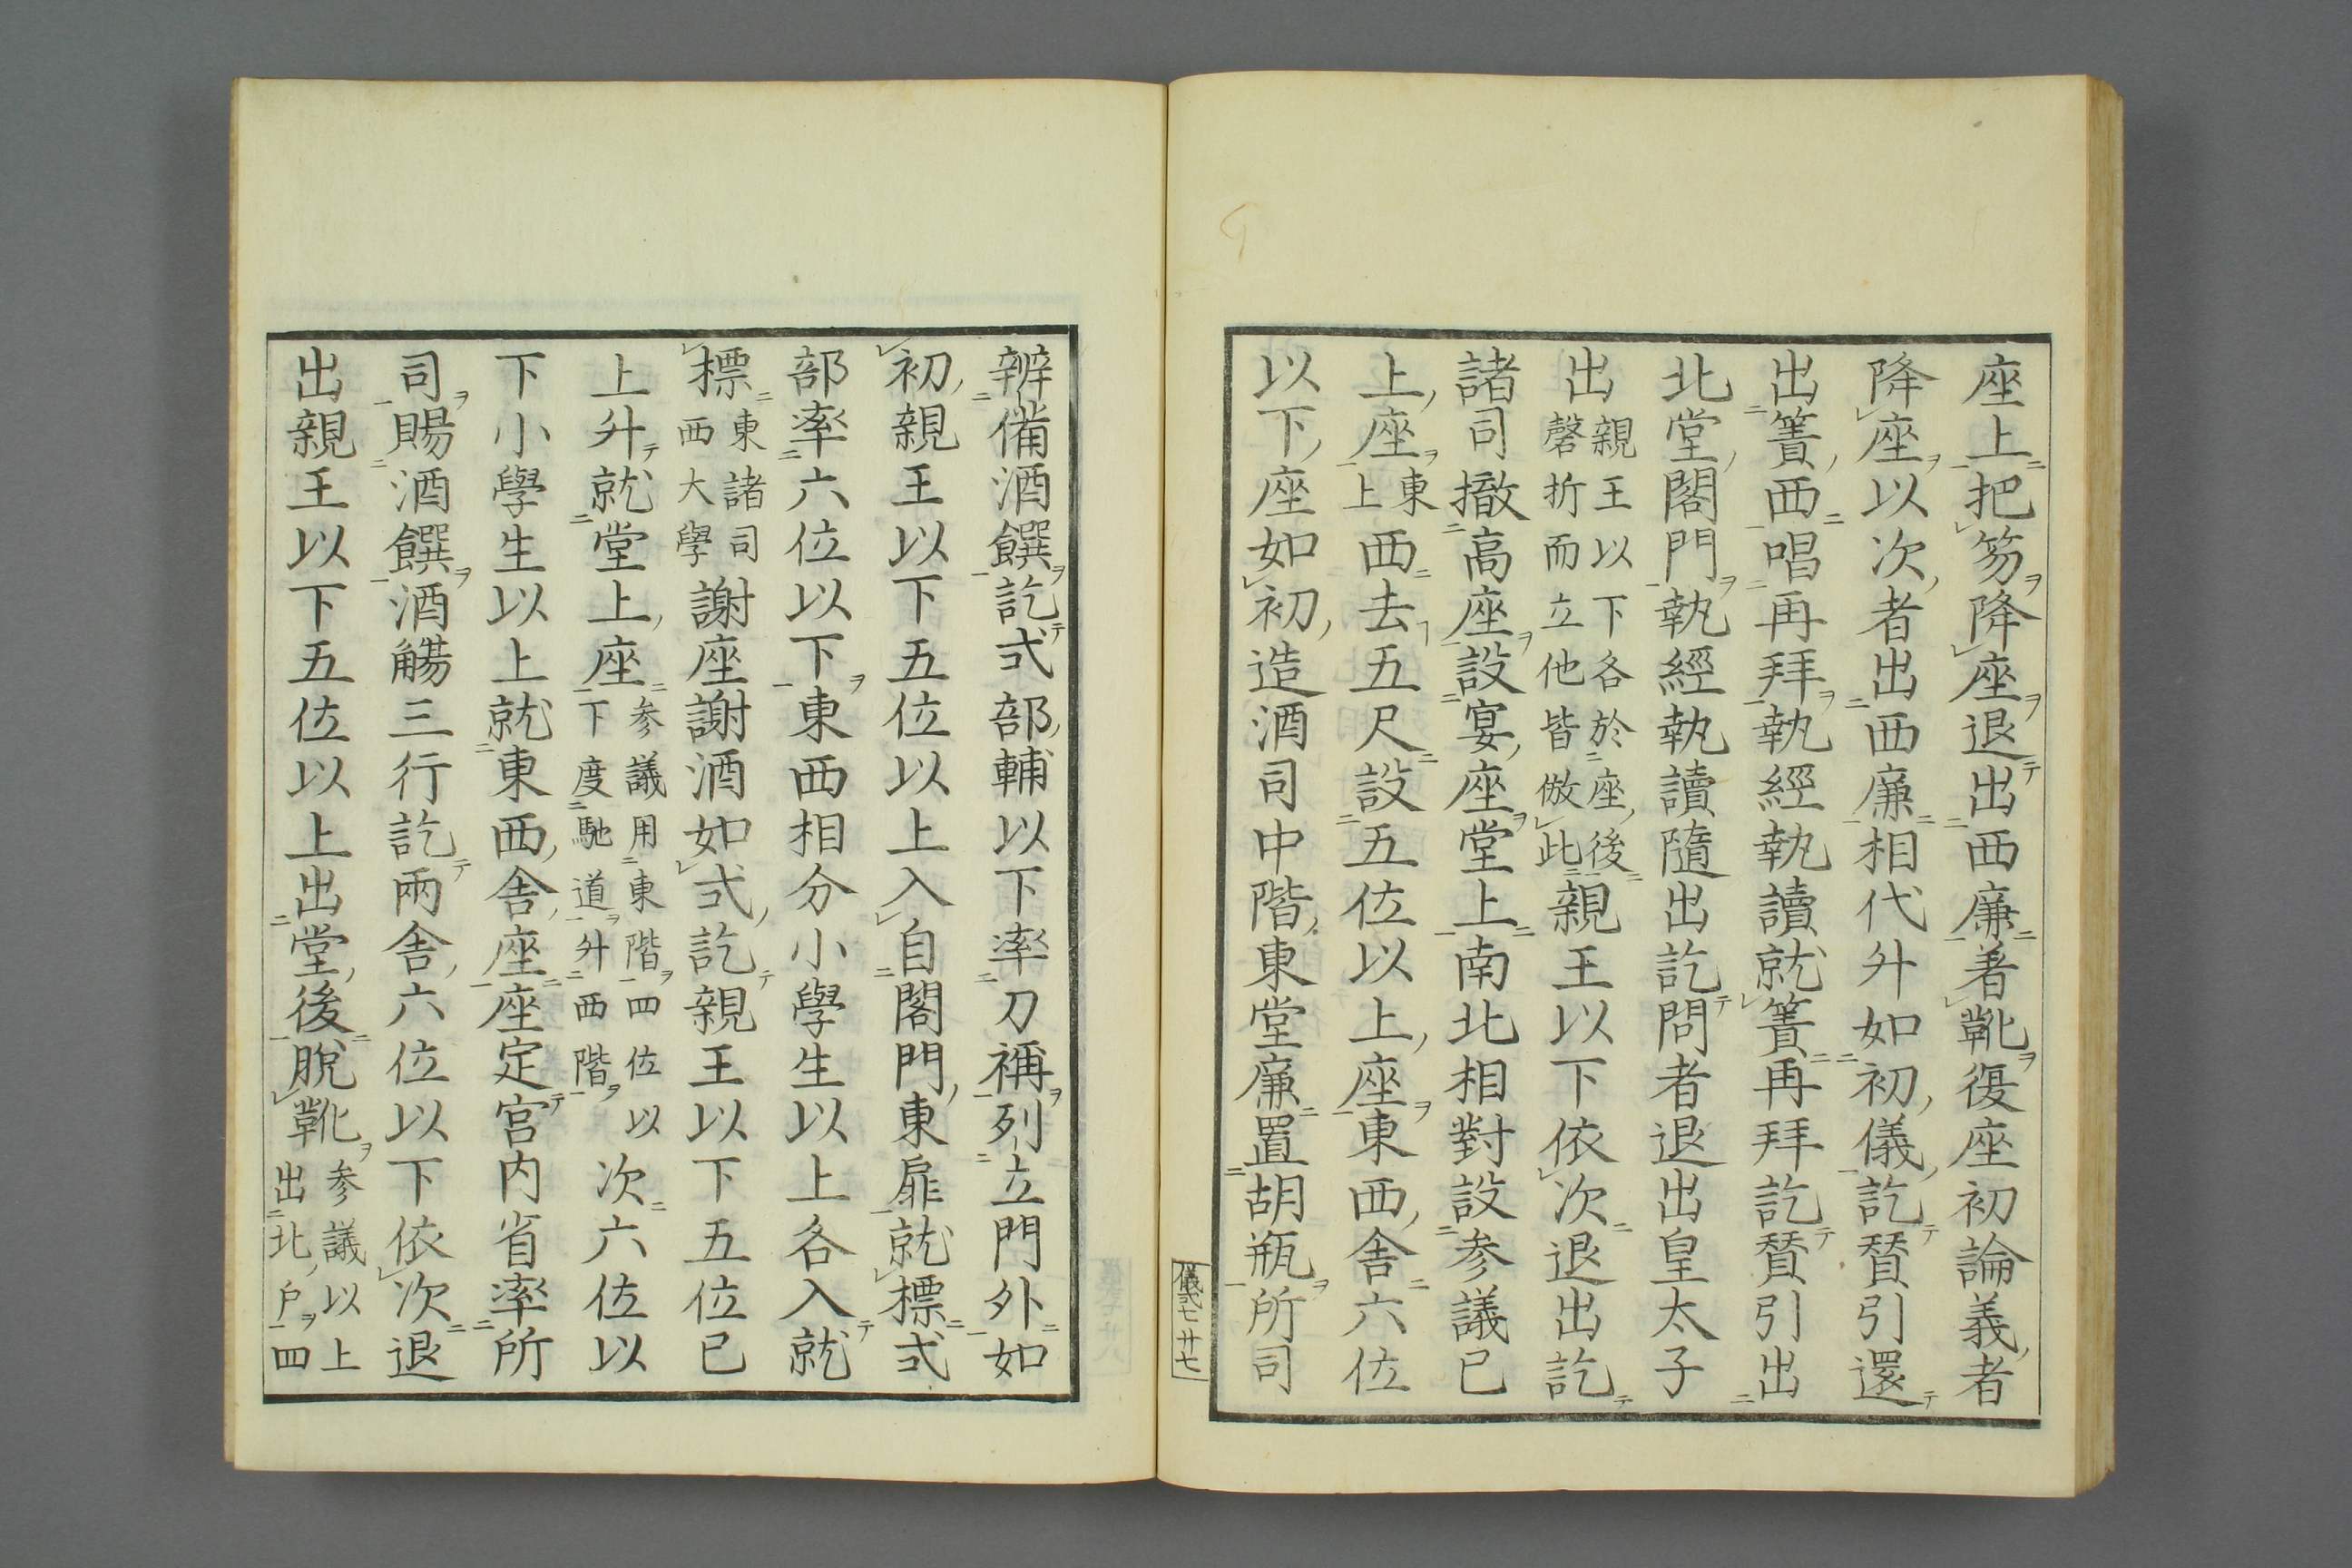 座上把笏降座退出西廉著靴復座初論義者
降座以次者出西廉相代升如初儀訖賛引還
出簀西唱再拜執經執讀就簀再拜訖賛引出
北堂閤門執經執讀隨出訖問者退出皇太子
出親王以下各於座後
磬折而立他皆倣此親王以下依次退出訖
諸司撤高座設宴座堂上南北相對設参議已
上座東
上西去五尺設五位以上座東西舎六位
以下座如初造酒司中階東堂廉置胡瓶所司
儀式七 廿七
辨備酒饌訖式部輔以下率刀禰列立門外如
初親王以下五位以上入自閤門東扉就標式
部率六位以下東西相分小學生以上各入就
標東諸司
西大學謝座謝酒如式訖親王以下五位已
上升就堂上座参議用東階四位以
下度馳道升西階次六位以
下小學生以上就東西舎座座定宮内省率所
司賜酒饌酒觴三行訖兩舎六位以下依次退
出親王以下五位以上出堂後脫靴参議以上
出北戸四